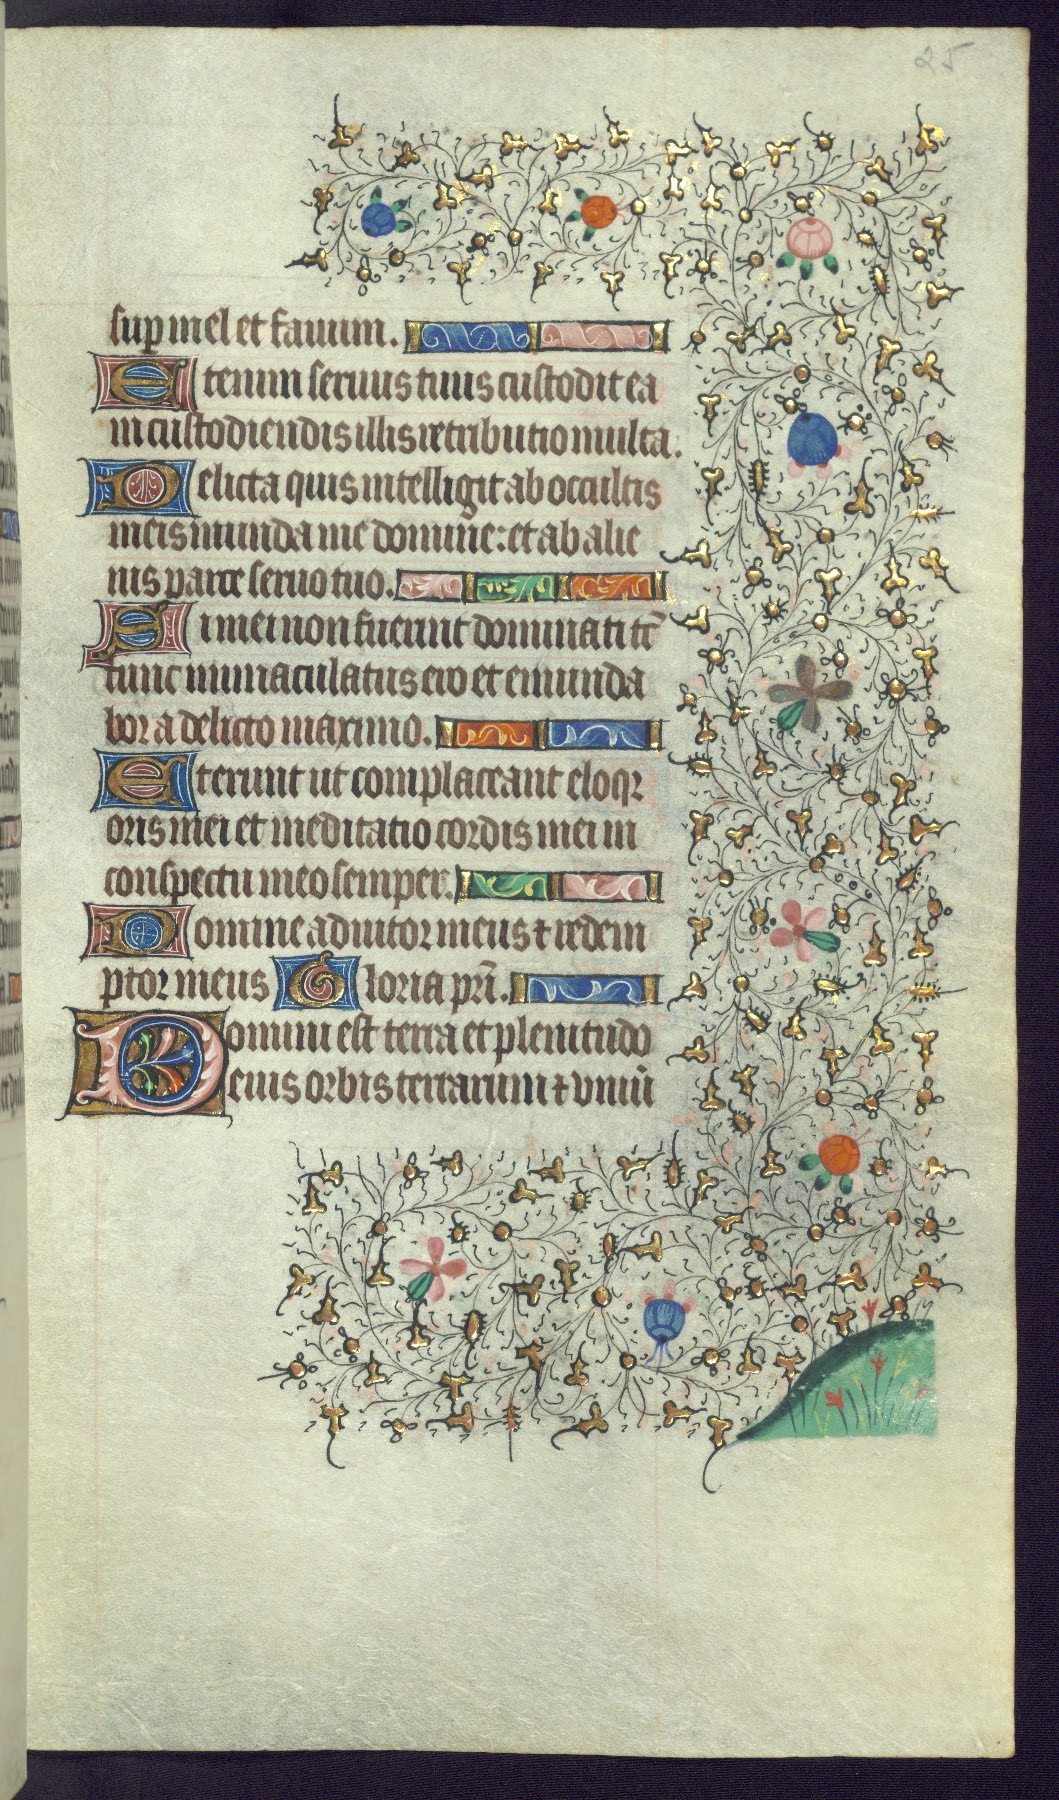 25
sup mel et fauum.
Etenim seruus tuus custodit ea
in custodiendis illis retributio multa.
Delicta quis intelligit ab occultis
meis munda me domine: et ab alie
nis parce seruo tuo.
Si mei non fuerint dominati tc̄
tunc immaculatus ero et emunda
bor a delicto maximo.
Et erunt ut complaceant eloqꝛ
oris mei et meditatio cordis mei in
conspectu meo semper.
Domine adiutor meus ⁊ redem
ptor meus Gloria pr̄i.
Domini est terra et plenitudo
eius orbis terrarum ⁊ vniū